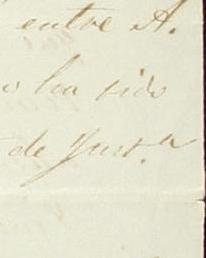 entre A.
o ha sido
de Just.a